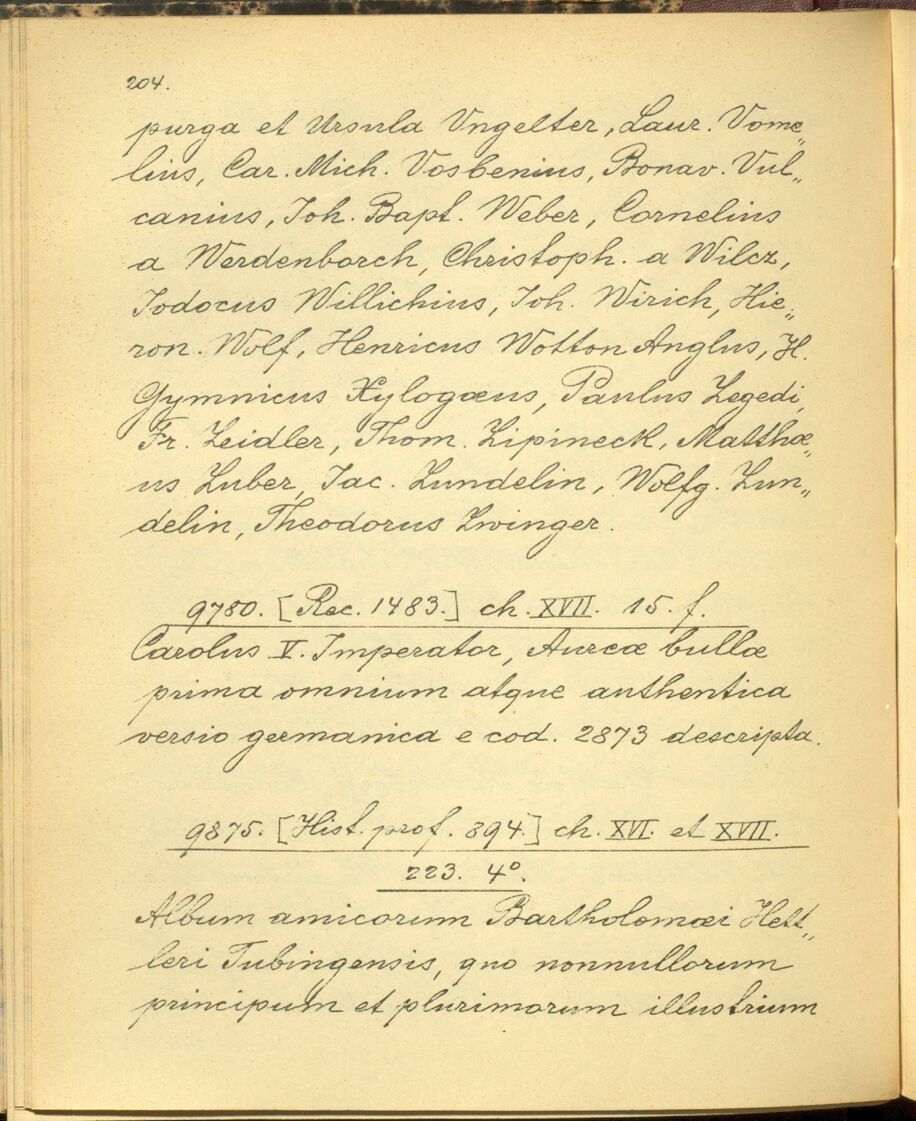 204.
purga et Ursula Vngelter, Laur. Vome„
lius, Car. Mich. Vosbenius, Bonav. Vul„
canius, Joh. Bapt. Weber, Cornelius
a Werdenborch, Christoph. a Wilcz,
Jodocus Willichius, Joh. Wirich, Hie„
ron. Wolf, Henricus Wotton Anglus, H.
Gymnicus Xylogæus, Paulus Zegedi,
Fr. Zeidler, Thom. Zipineck, Matthæ„
us Zuber, Jac. Zundelin, Wolfg. Zun„
delin, Theodorus Zwinger.
9780. [Rec. 1483.] ch. XVII. 15. f.
Carolus V. Imperator, Aureæ bullæ
prima omnium atque authentica
versio germanica e cod. 2873 descripta.
9875. [Hist. prof. 894.] ch. XVI. et XVII.
223. 4º.
Album amicorum Bartholomæi Hett„
leri Tubingensis, quo nonnullorum
principum et plurimorum illustrium